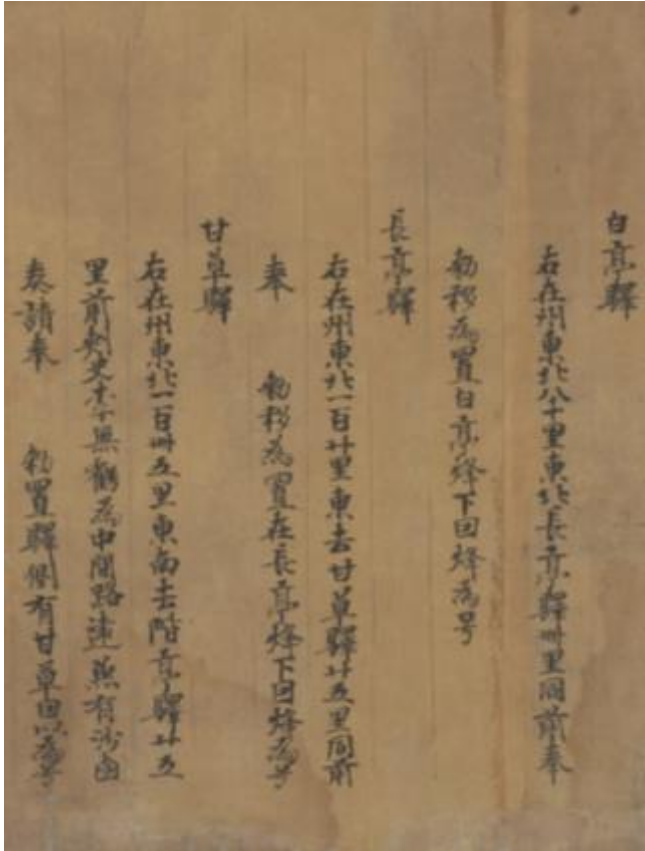 白亭驛
右在州東北八十里東北長亭驛卌里同前奉
勑移為置白亭烽下因烽為号
長亭驛
右在州東北一百廿里東去甘草驛廿五里同前
奉 勑移為置在長亭烽下因烽為号
甘草驛
右在州東北一百卌五里東南去階亭驛廿五
里前刾史李無虧為中間路遠兼有沙鹵
奏請奉 勑置驛側有甘草因以為号